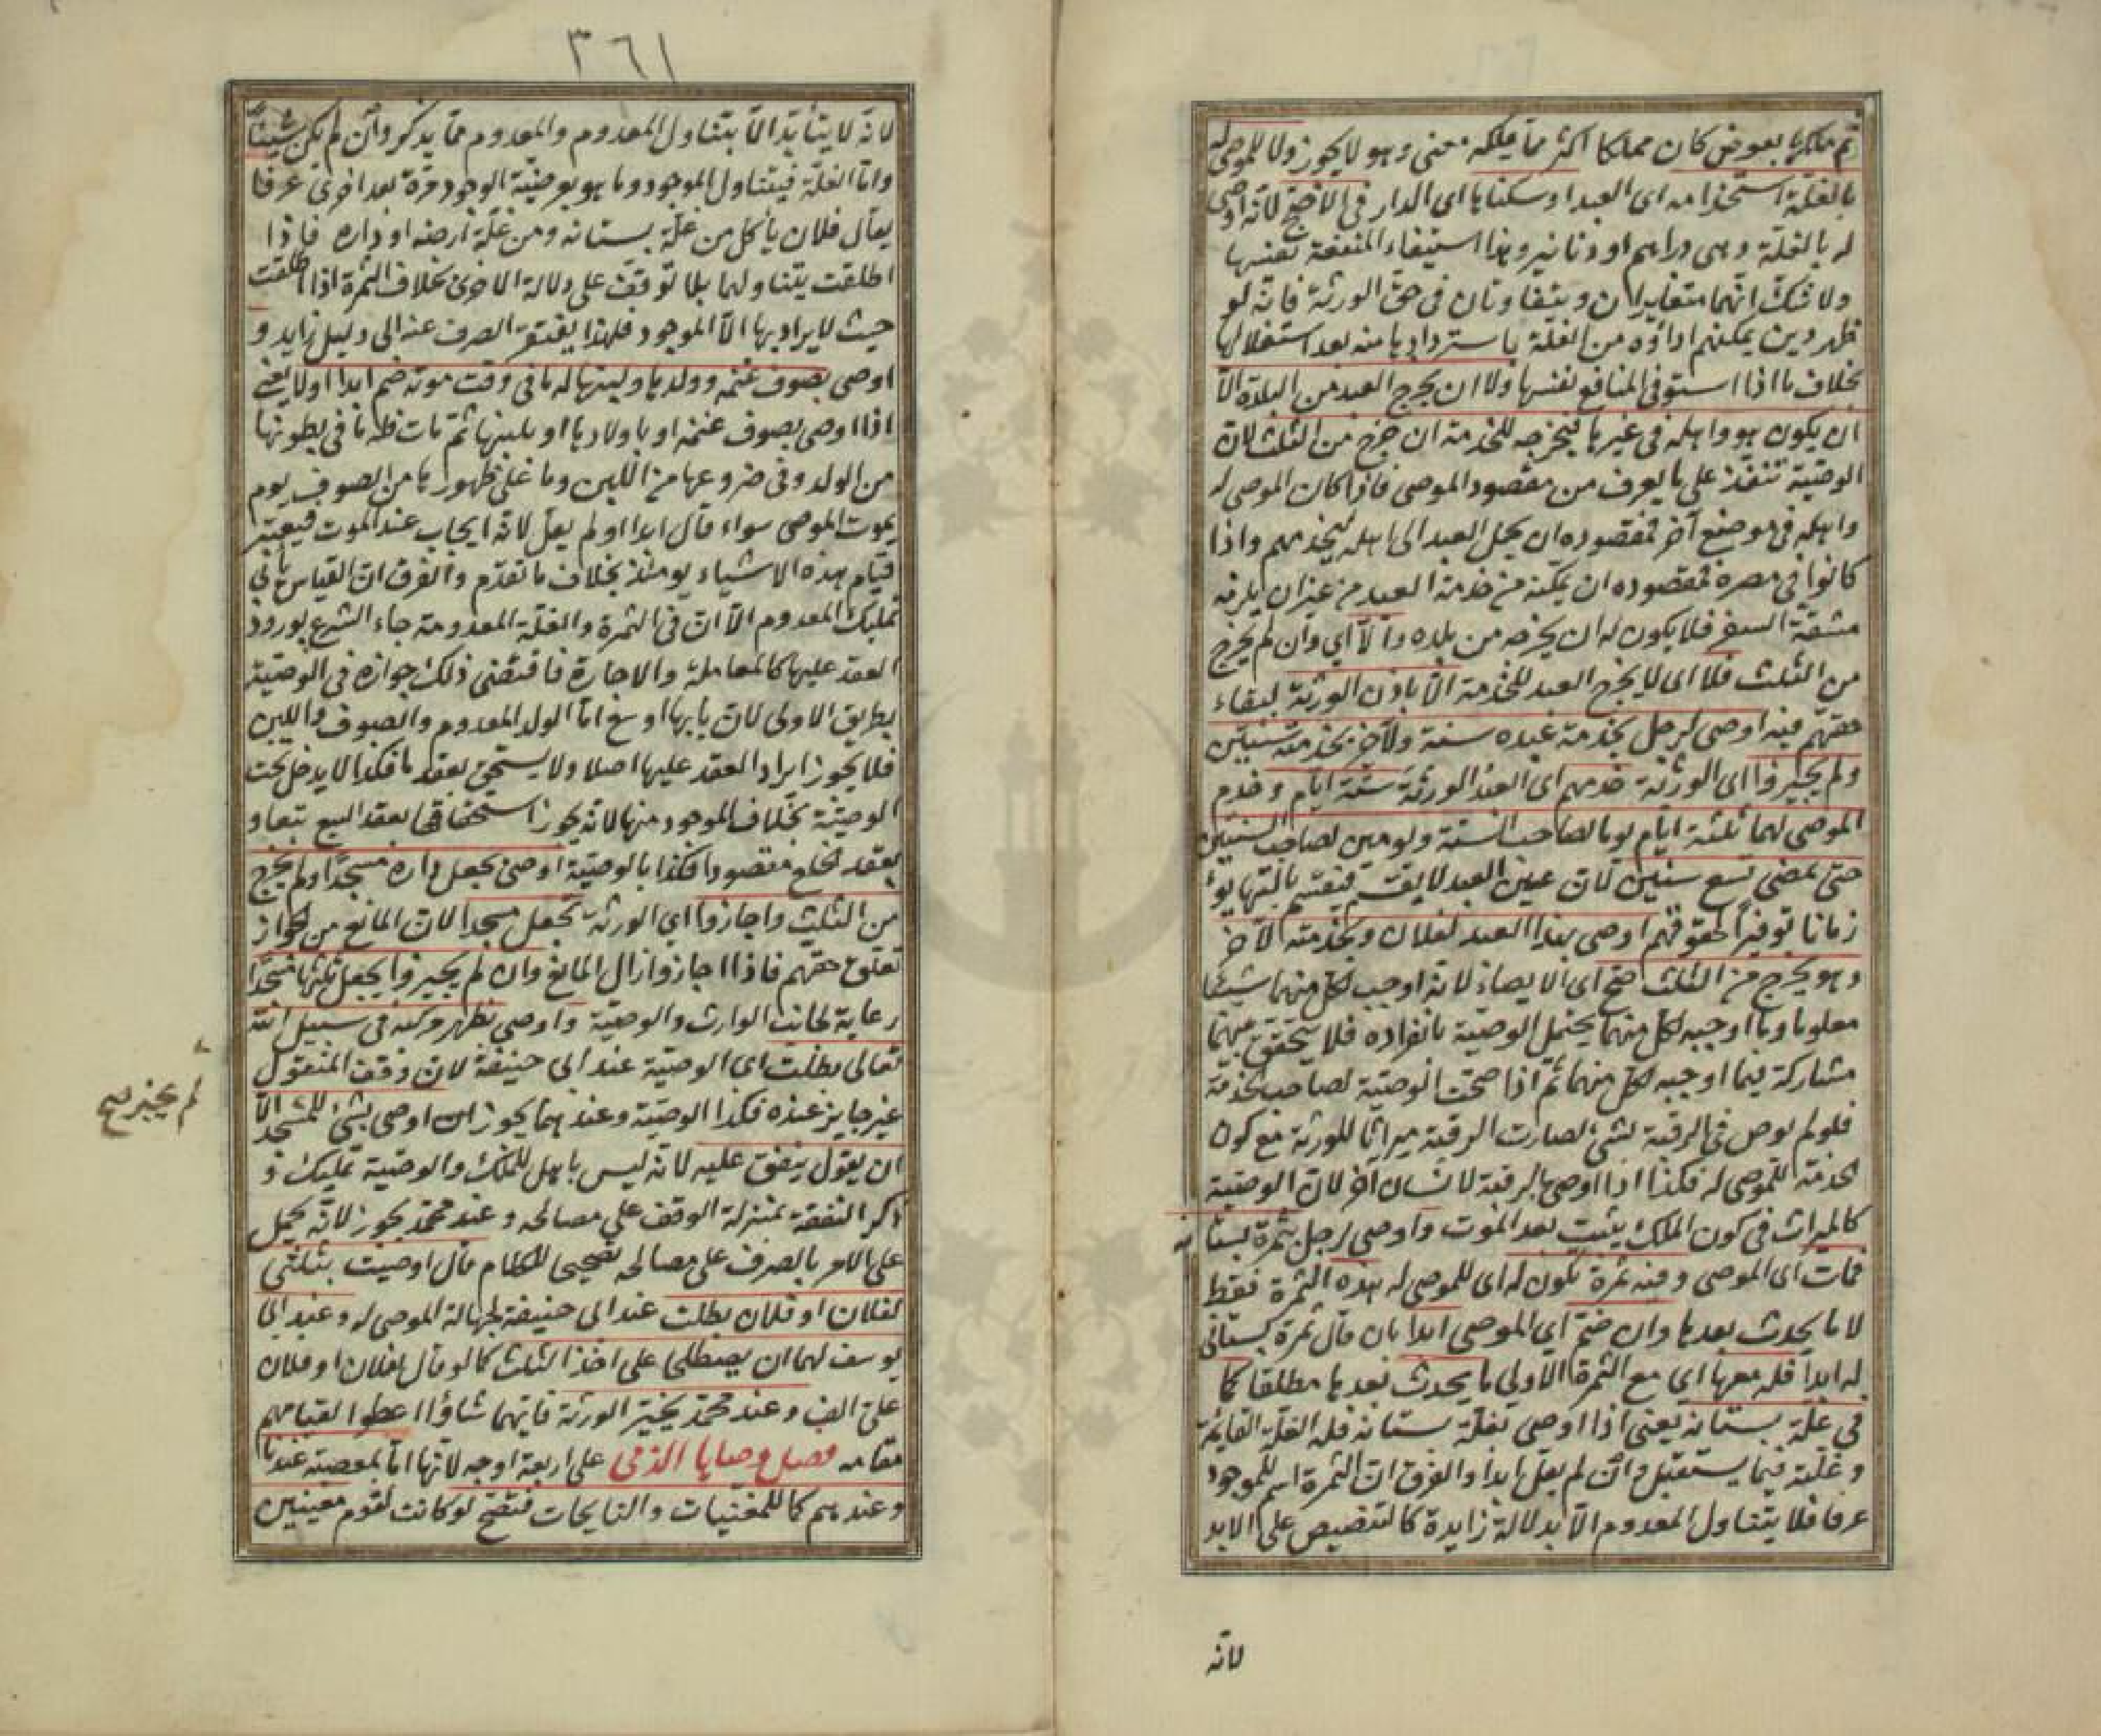 ثم ملكها بعوض كان مملكا اكثر مما يملكه معنى وهو لا يجوز ولا للموصى له
بالغلة استخدامه اى العبد او سكناها اى الدار فى الاصح لانه اوصى
له بالغلة وهى دراهم او دنانير وهذا استيفاء المنفعة نفسها
ولا شك انهما متغايران ويتفاوتان فى حق الورثة فانه لو
ظهر دين يمكنهم اداؤه من الغلة باستردادها منه بعد استغلالها
بخلاف ما اذا استوفى المنافع نفسها ولا ان يخرج العبد من البلدة الا
ان يكون هو واهله فى غيرها فيخرجه للخدمة ان خرج من الثلث لان
الوصية تنفذ على ما يعرف من مقصود الموصى فاذا كان الموصى له
واهله فى موضع آخر فمقصوده ان يحمل العبد الى اهله ليخدمهم واذا
كانوا فى مصره فمقصوده ان يمكنه من خدمة العبد من غير ان يلزمه
مشقة السفر فلا يكون له ان يخرجه من بلده والا اى وان لم يخرج
من الثلث فلا اى لا يخرج العبد للخدمة الا باذن الورثة لبقاء
حقهم فيه اوصى لرجل بخدمة عبده سنة ولآخر بخدمته سنتين
ولم يجيزوا اى الورثة خدمهم اى العبد الورثة ستة ايام وخدم
الموصى لهما ثلثة ايام يوما لصاحب السنة ويومين لصاحب السنتين
حتى تمضى تسع سنين لان عين العبد لا يقسم فيقسم بالتهايؤ
زمانا توفيرا لحقوقهم اوصى بهذا العبد لفلان وبخدمته لآخر
وهو يخرج من الثلث صح اى الايصاء لانه اوجب لكل منهما شيئا
معلوما وما اوجبه لكل منهما يحتمل الوصية بانفراده فلا يتحقق بينهما
مشاركة فيما اوجبه لكل منهما ثم اذا صحت الوصية لصاحب الخدمة
فلو لم يوص فى الرقبة بشئ لصارت الرقبة ميراثا للورثة مع كون
الخدمة للموصى له فكذا اذا اوصى بالرقبة لانسان آخر لان الوصية
كالميراث فى كون الملك يثبت بعد الموت واوصى لرجل بثمرة بستانه
فمات اى الموصى وفيه ثمرة يكون له اى للموصى له هذه الثمرة فقط
لا ما يحدث بعدها وان ضم اى الموصى ابدا بان قال ثمرة بستانى
له ابدا فله معها اى مع الثمرة الاولى ما يحدث بعدها مطلقا كما
فى غلة بستانه يعنى اذا اوصى بغلة بستانه فله الغلة القائمة
وغلته فيما يستقبل وان لم يقل ابدا والفرق ان الثمرة اسم للموجود
عرفا فلا يتناول المعدوم الا بدلالة زايدة كالتنصيص على الابد
لانه
٣٦١
لانه لا يتأبد الا بتناول المعدوم والمعدوم مما يذكر وان لم يكن شيئا
واما الغلة فيتناول الموجود وما هو بعرضية الوجود مرة بعد اخرى عرفا
يقال فلان يأكل من غلة بستانه ومن غلة ارضه او داره فاذا
اطلقت يتناولهما بلا توقف على دلالة الاخرى بخلاف الثمرة اذا اطلقت
حيث لا يراد بها الا الموجود فلهذا يفتقر الصرف عنه الى دليل زايد و
اوصى بصوف غنمه وولدها ولبنها له ما فى وقت موته ضم ابدا اولا يعنى
اذا اوصى بصوف غنمه او باولادها او بلبنها ثم مات فله ما فى بطونها
من الولد وفى ضروعها من اللبن وما على ظهورها من الصوف يوم
يموت الموصى سواء قال ابدا او لم يقل لانه ايجاب عند الموت فيعتبر
قيام هذه الاشياء يومئذ بخلاف ما تقدم والفرق ان القياس يأبى
تمليك المعدوم الا ان فى الثمرة والغلة المعدومة جاء الشرع بورود
العقد عليها كالمعاملة والاجارة فاقتضى ذلك جوازه فى الوصية
بطريق الاولى لان بابها اوسع اما الولد المعدوم والصوف واللبن
فلا يجوز ايراد العقد عليها اصلا ولا يستحق بعقد ما فكذا لا يدخل تحت
الوصية بخلاف الموجود منها لانه يجوز استحقاقها بعقد البيع تبعا و
بعقد الخلع مقصودا فكذا بالوصية اوصى بجعل داره مسجدا ولم يخرج
من الثلث واجازوا اى الورثة تجعل مسجدا لان المانع من الجواز
تعلق حقهم فاذا اجازوا زال المانع وان لم يجيزوا يجعل ثلثها مسجدا
رعاية لجانب الوارث والوصية واوصى بظهر مركبه فى سبيل الله
تعالى بطلت اى الوصية عند ابى حنيفة لان وقف المنقول
غير جايز عنده فكذا الوصية وعندهما يجوز ان اوصى بشئ للمسجد الا
ان يقول ينفق عليه لانه ليس باهل للملك والوصية تمليك و
ذكر النفقة بمنزلة الوقف على مصالحه وعند محمد يجوز لانه يحمل
على الامر بالصرف على مصالحه تصحيحا للكلام قال اوصيت بثلثى
لفلان او فلان بطلت عند ابى حنيفة لجهالة الموصى له وعند ابى
يوسف لهما ان يصطلحا على اخذ الثلث كما لو قال لفلان او فلان
على الف وعند محمد يخير الورثة فايهما شاؤا اعطوا لقيامهم
مقامه فصل وصايا الذمى على اربعة اوجه لانها اما بمعصية عندنا
وعندهم كما للمغنيات والنايحات فتصح لو كانت لقوم معينين